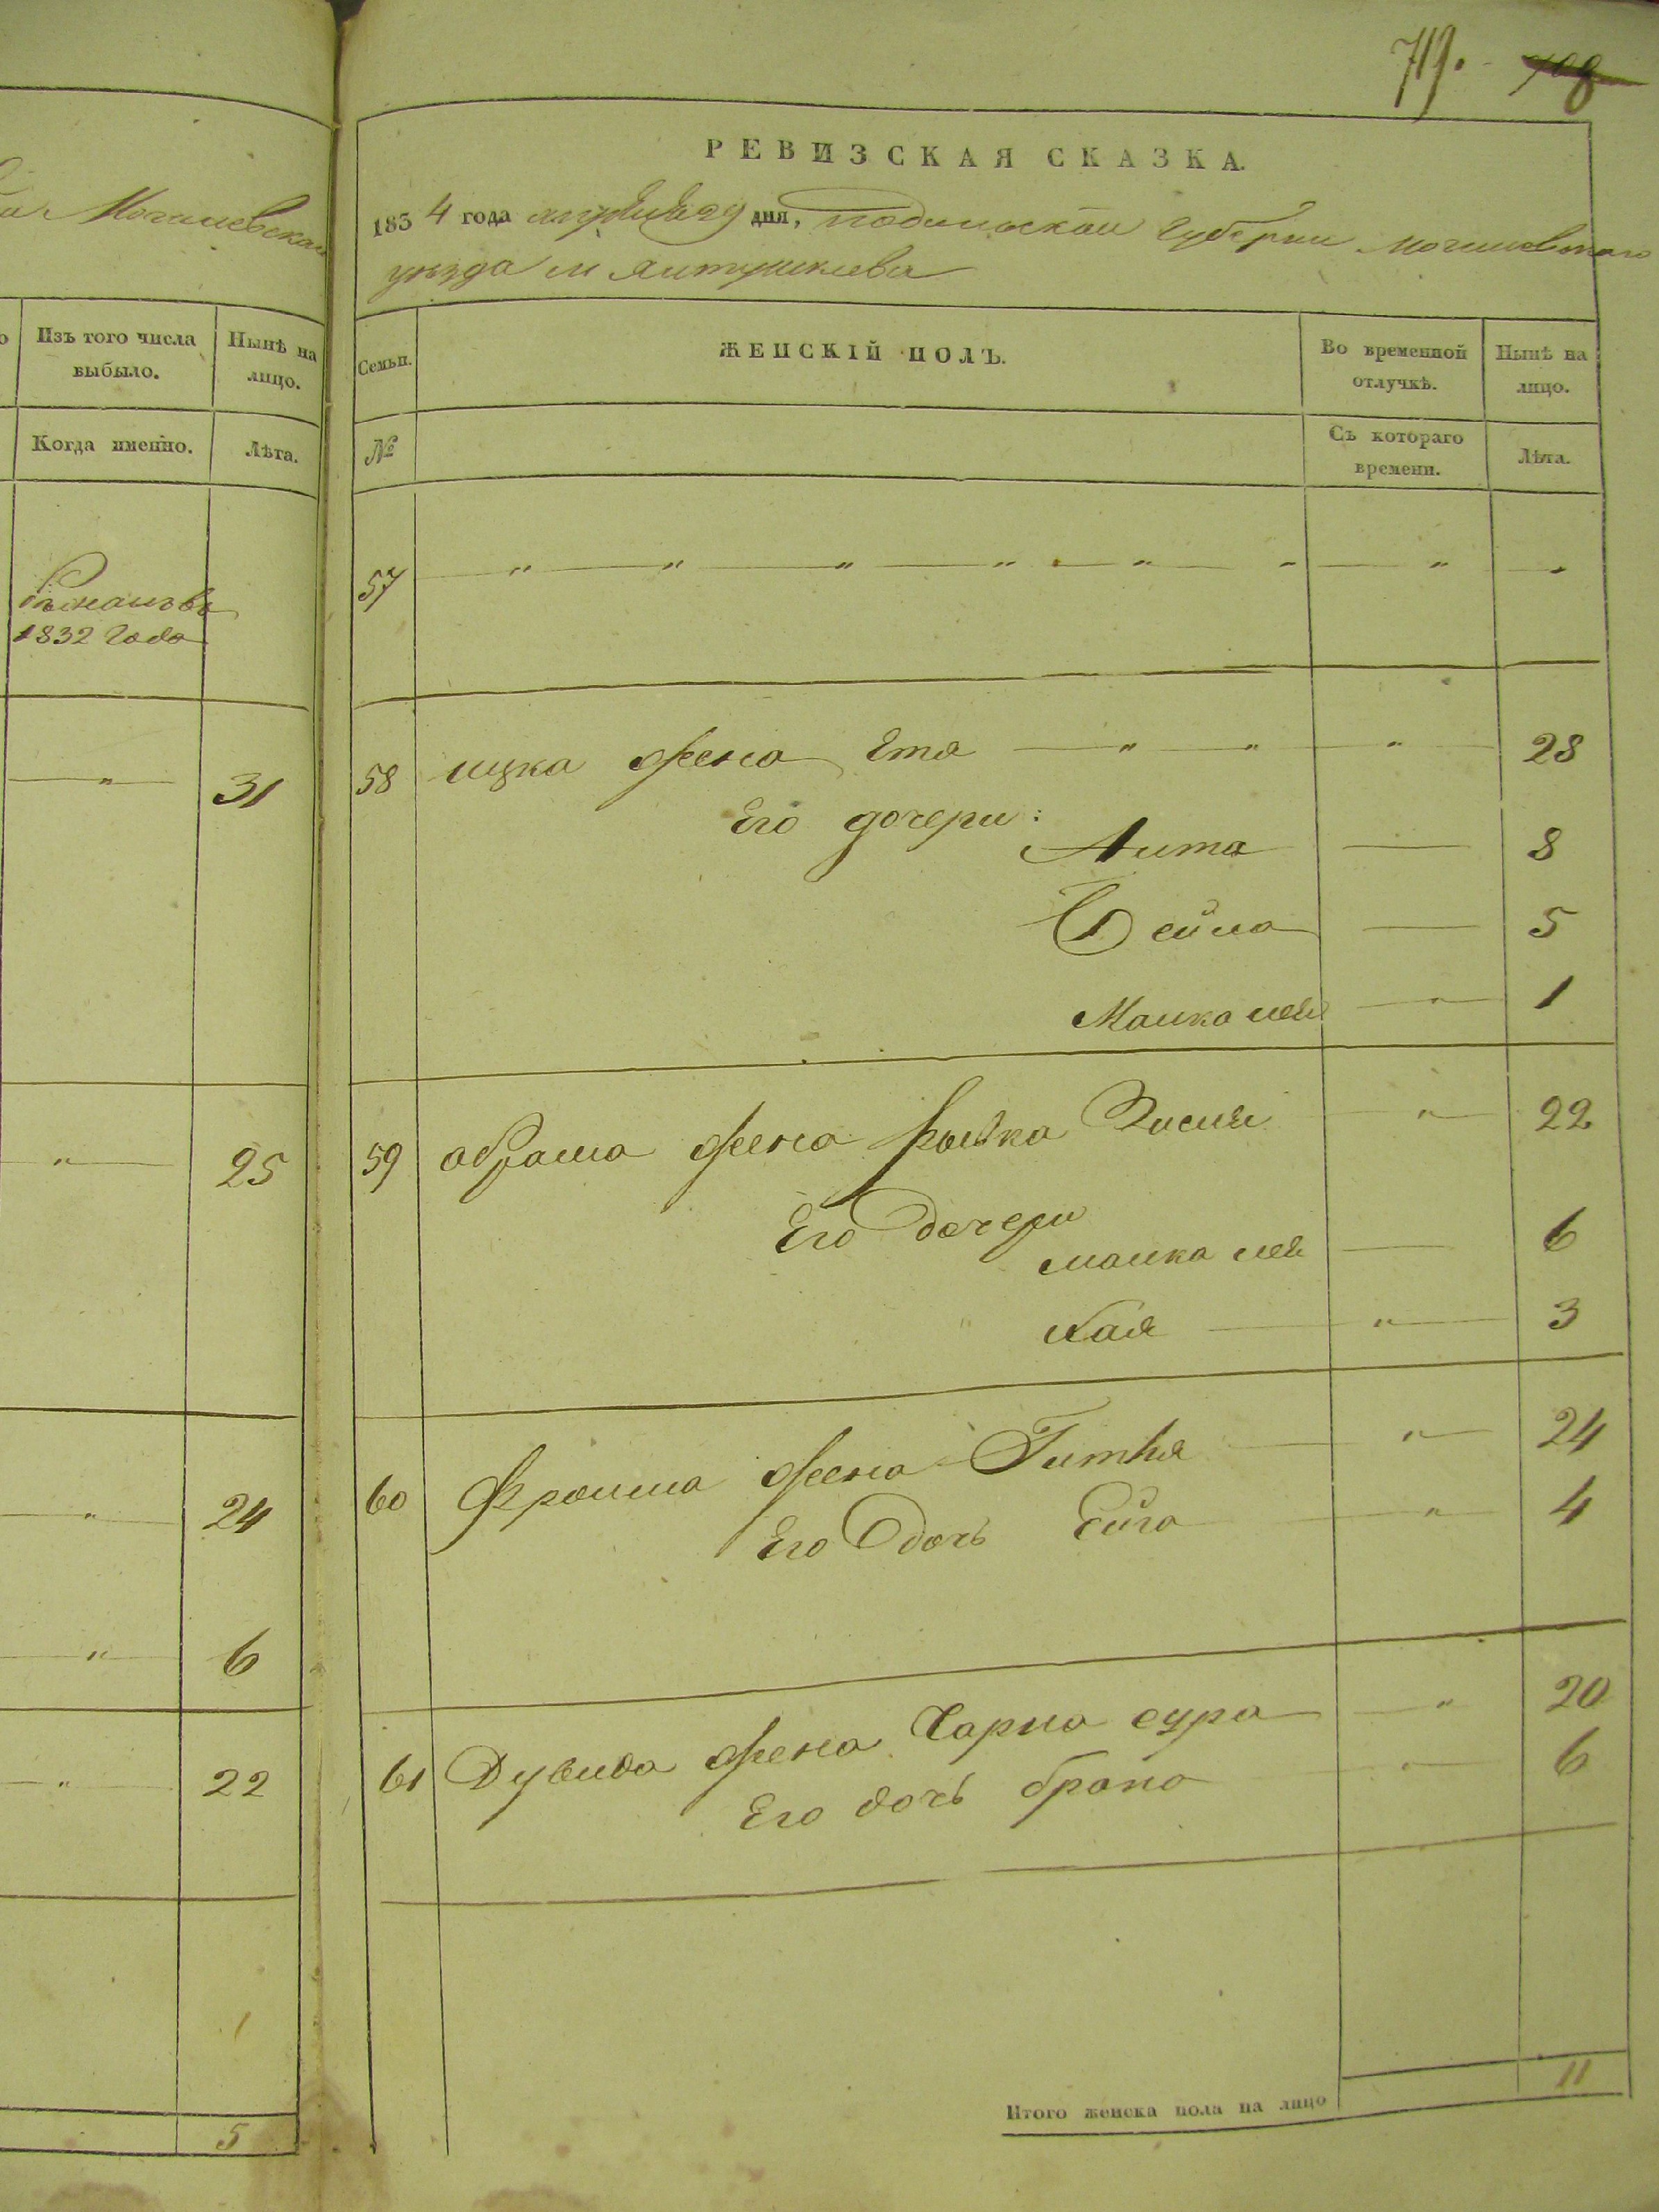 Могилевская
Изъ того числа выбыло.
Нынѣ на лицо.
Когда именно.
Лѣта.
1832 года
31
25
24
6
22
5
719. 708
РЕВИЗСКАЯ СКАЗКА.
1834 года апреля 29 дня, подольской губернии могилевского
уезда м Ялтушкова
Семьи.
ЖЕНСКІЙ ПОЛЪ.
Во временной отлучкѣ.
Нынѣ на лицо.
№
Съ котораго времени.
Лѣта.
57
58 ицка жена Етя 28
Его дочери:
Лита 8
Бейла 5
Малка лея 1
59 абрама жена Рывка 22
Его дочери
малка лея 6
хая 3
60 Фроима жена Гитля 24
Его дочь Ейга 4
61 Дувида жена Чарна сура 20
Его дочь брана 6
Итого женска пола на лицо 11